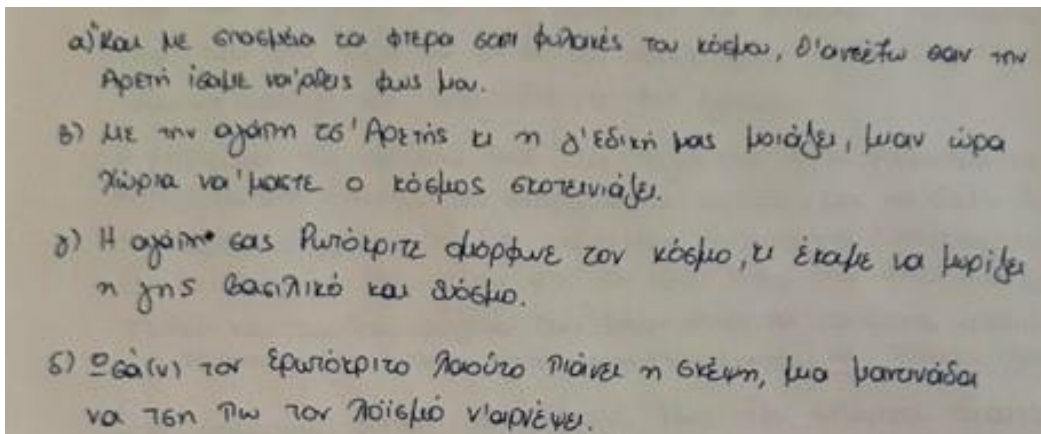 α) Και με σπασμένα τα φτερά στσι φυλακές του κόσμου, θ'αντέξω σαν την
Αρετή ίσαμε να'ρθεις φως μου.
β) Με την αγάπη τσ' Αρετής κι η γ'εδική μας μοιάζει, μιαν ώρα
χώρια να'μαστε ο κόσμος σκοτεινιάζει.
γ) Η αγάπη σας Ρωτόκριτε ομόρφυνε τον κόσμο, κι έκαμε να μυρίζει
η γης βασιλικό και δυόσμο.
δ) Ωσά(ν) τον Ερωτόκριτο λαούτο πιάνει η σκέψη, μια μαντινάδα
να τση πω τον λοϊσμό ν'αρνέψει.